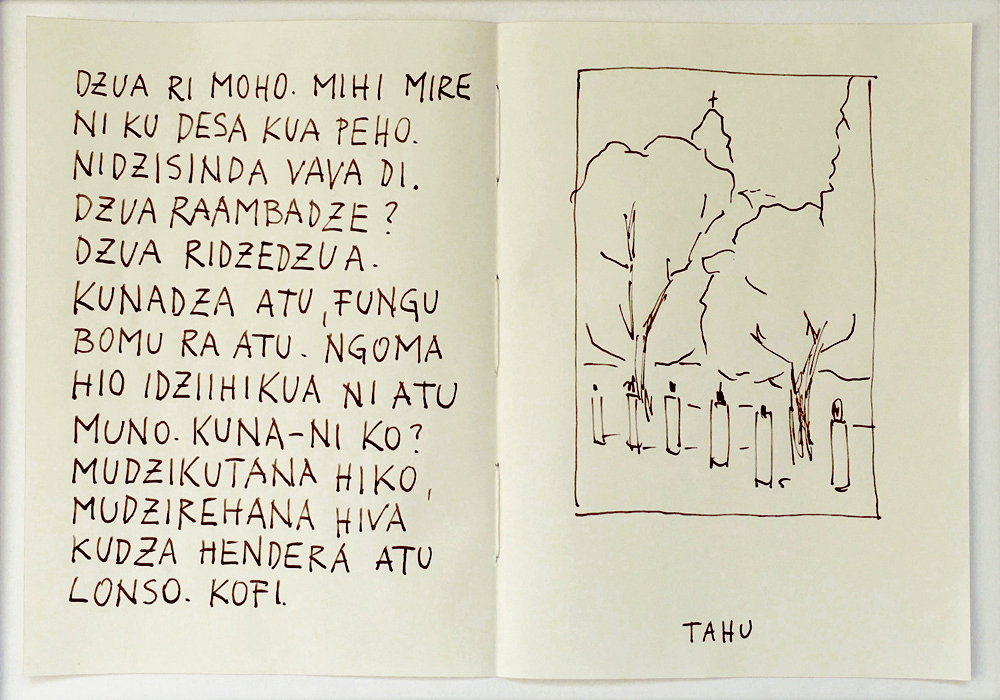 DZUA RI MOHO. MIHI MIRE
NI KU DESA KUA PEHO.
NIDZISINDA VAVA DI.
DZUA RAAMBADZE ?
DZUA RIDZEDZUA.
KUNADZA ATU, FUNGU
BOMU RA ATU. NGOMA
HIO IDZIIHIKUA NI ATU
MUNO. KUNA-NI KO?
MUDZIKUTANA HIKO,
MUDZIREHANA HIVA
KUDZA HENDERA ATU
LONSO. KOFI.
TAHU